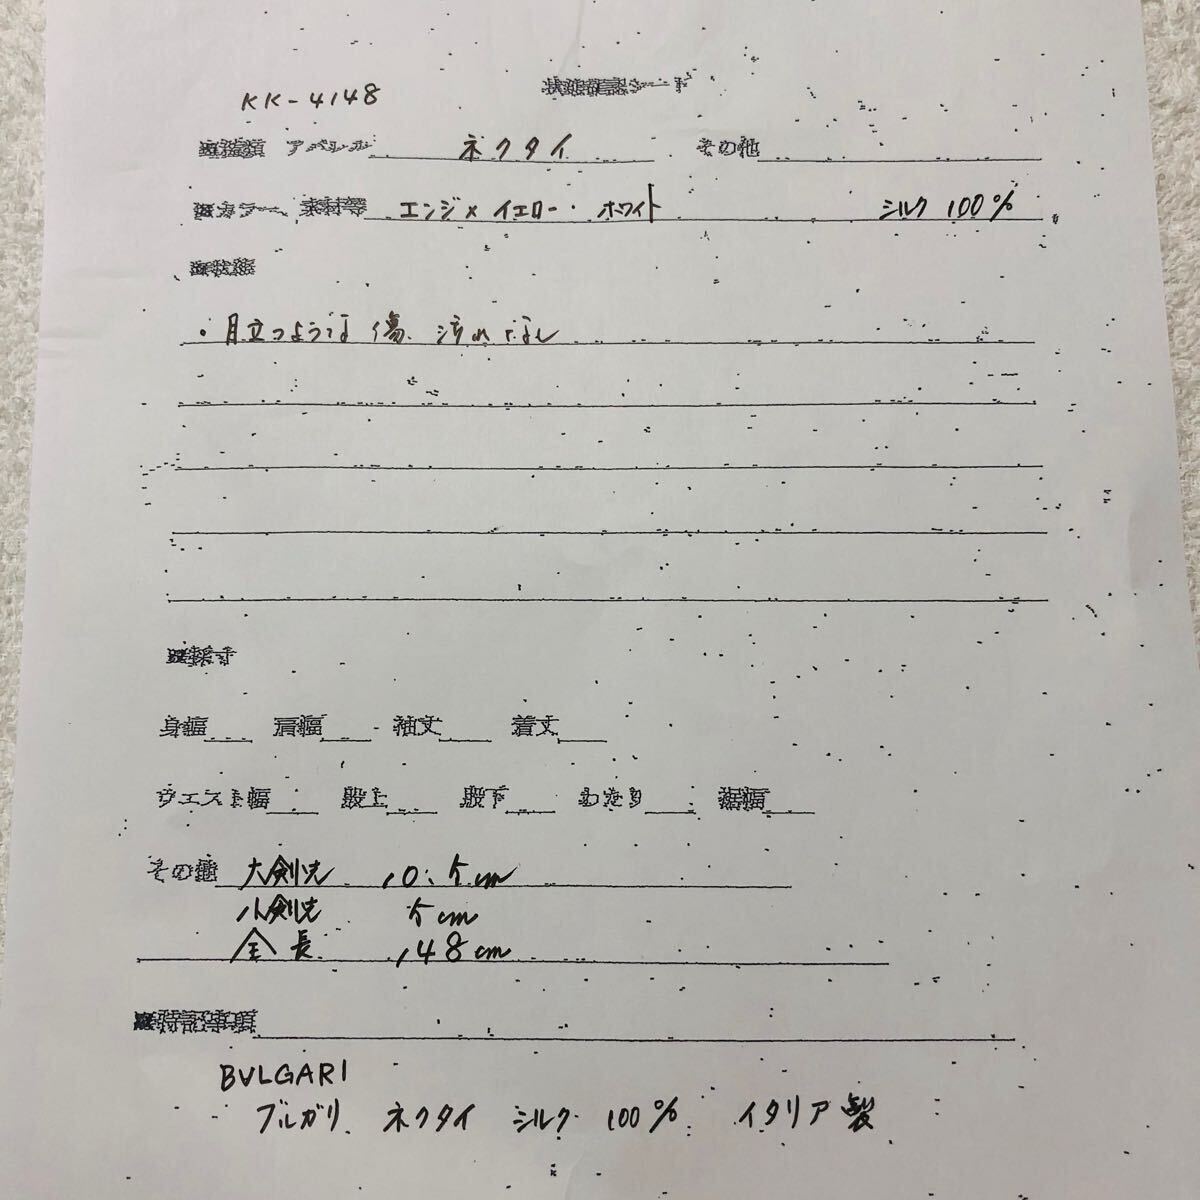 KK-4148
アパレル ネクタイ その他
カラー、素材等 エンジ×イエロー・ホワイト シルク 100%
・目立つような傷、汚れなし
身幅 肩幅 袖丈 着丈
ウエスト幅 股上 股下 わたり 裾幅
その他 大剣先 10.5cm
小剣先 5cm
全長 148cm
特記事項
BVLGARI
ブルガリ ネクタイ シルク 100% イタリア製